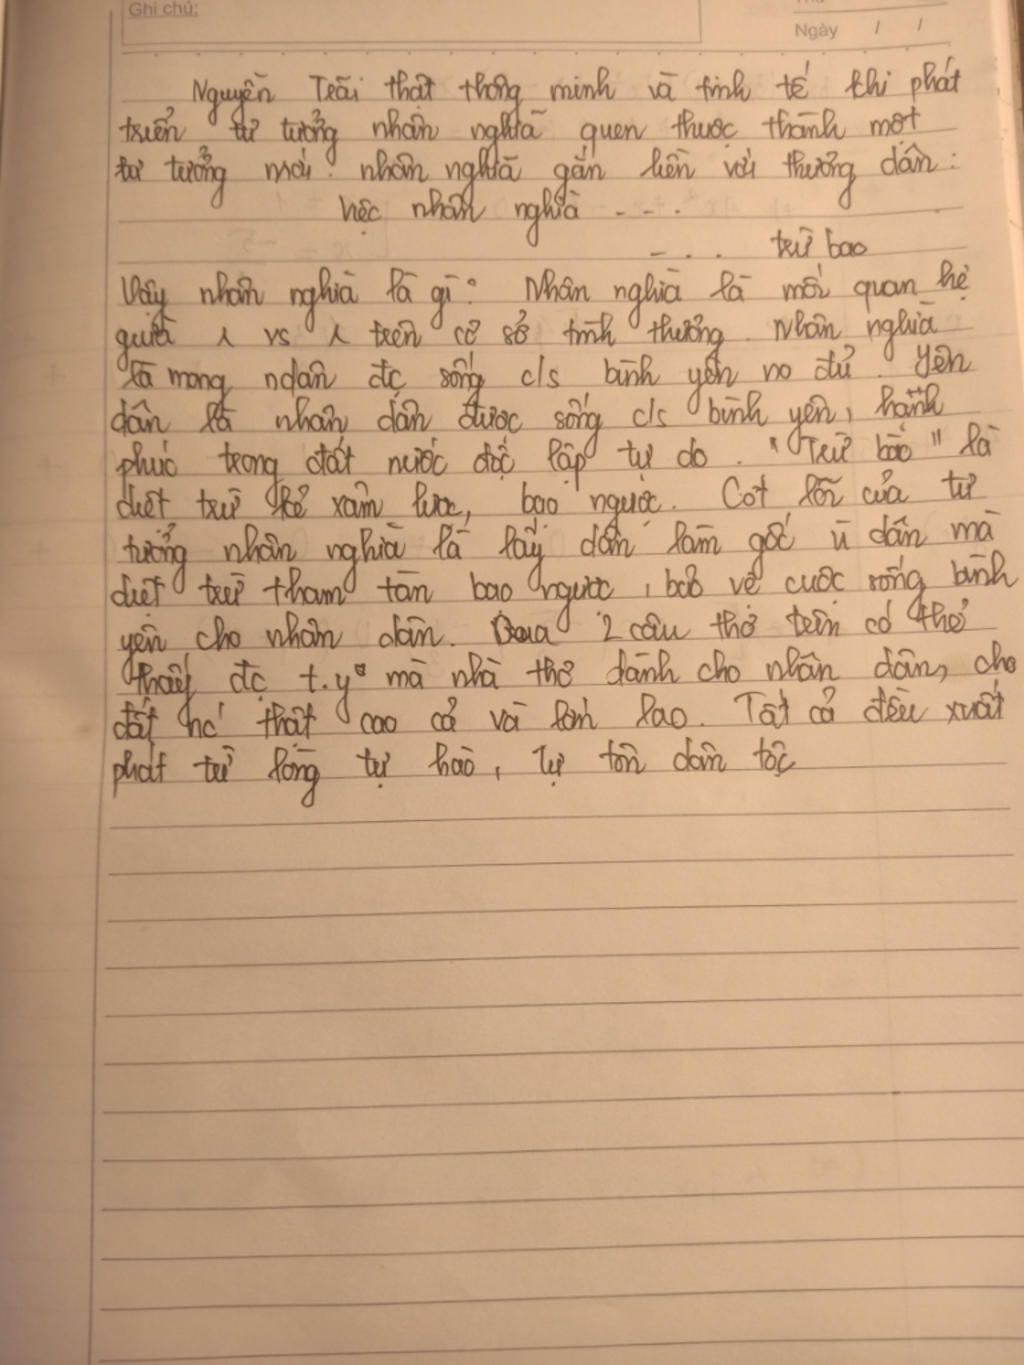 Ghi chú:
Ngày / /
Nguyễn Trãi thật thông minh và tinh tế khi phát
triển tư tưởng nhân nghĩa quen thuộc thành một
tư tưởng mới: nhân nghĩa gắn liền với thương dân:
Việc nhân nghĩa - - - .
- . . trừ bạo
Vậy nhân nghĩa là gì? Nhân nghĩa là mối quan hệ
giữa λ vs λ trên cơ sở tình thương. Nhân nghĩa
là mong ndân đc sống c/s bình yên no đủ. Yên
dân là nhân dân được sống c/s bình yên, hạnh
phúc trong đất nước độc lập tự do. "Trừ bạo" là
diệt trừ kẻ xâm lược, bạo ngược. Cốt lõi của tư
tưởng nhân nghĩa là lấy dân làm gốc vì dân mà
diệt trừ tham tàn bạo ngược, bảo vệ cuộc sống bình
yên cho nhân dân. Qua 2 câu thơ trên có thể
thấy đc t.y mà nhà thơ dành cho nhân dân, cho
đất nc' thật cao cả và lớn lao. Tất cả đều xuất
phát từ lòng tự hào, tự tôn dân tộc